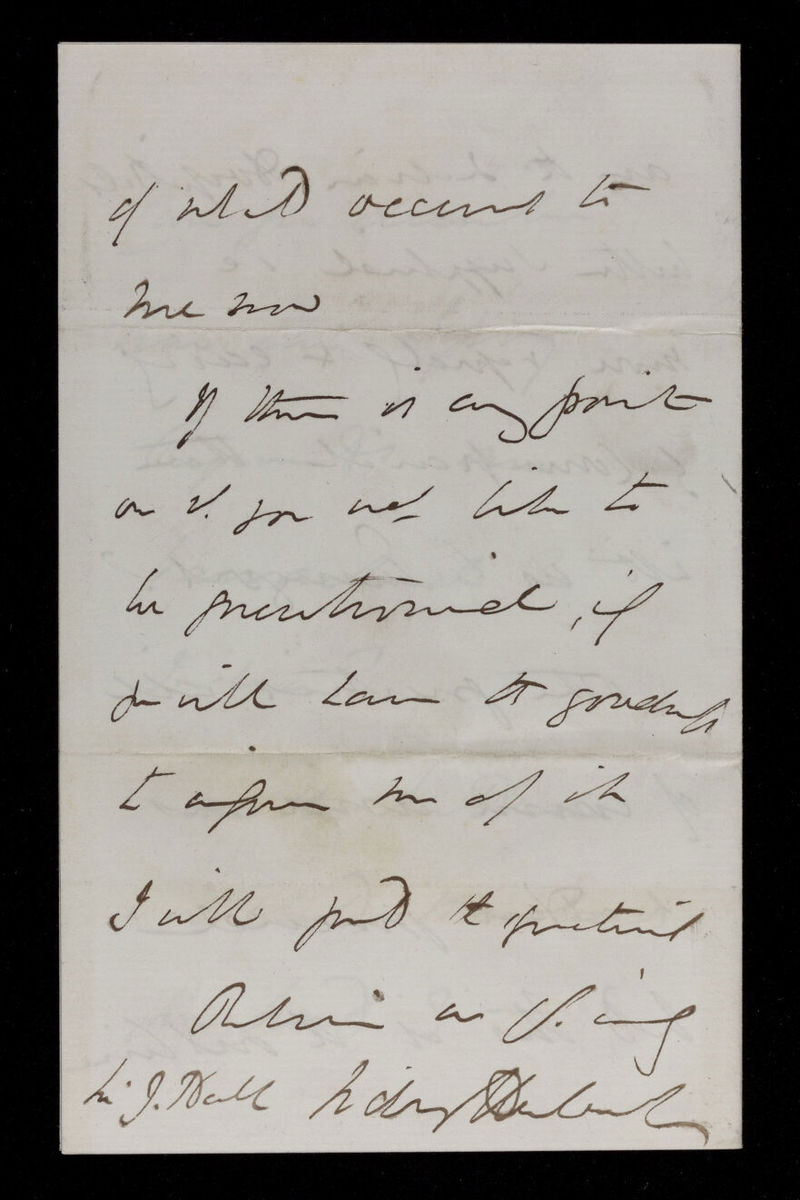 of what occurred to
me now
If there is any point
on wh. you wd. like to
be questioned, if
you will have the goodness
to inform me of it
I will put the question
Believe me V. try
Sir J. Hall Sidney Herbert